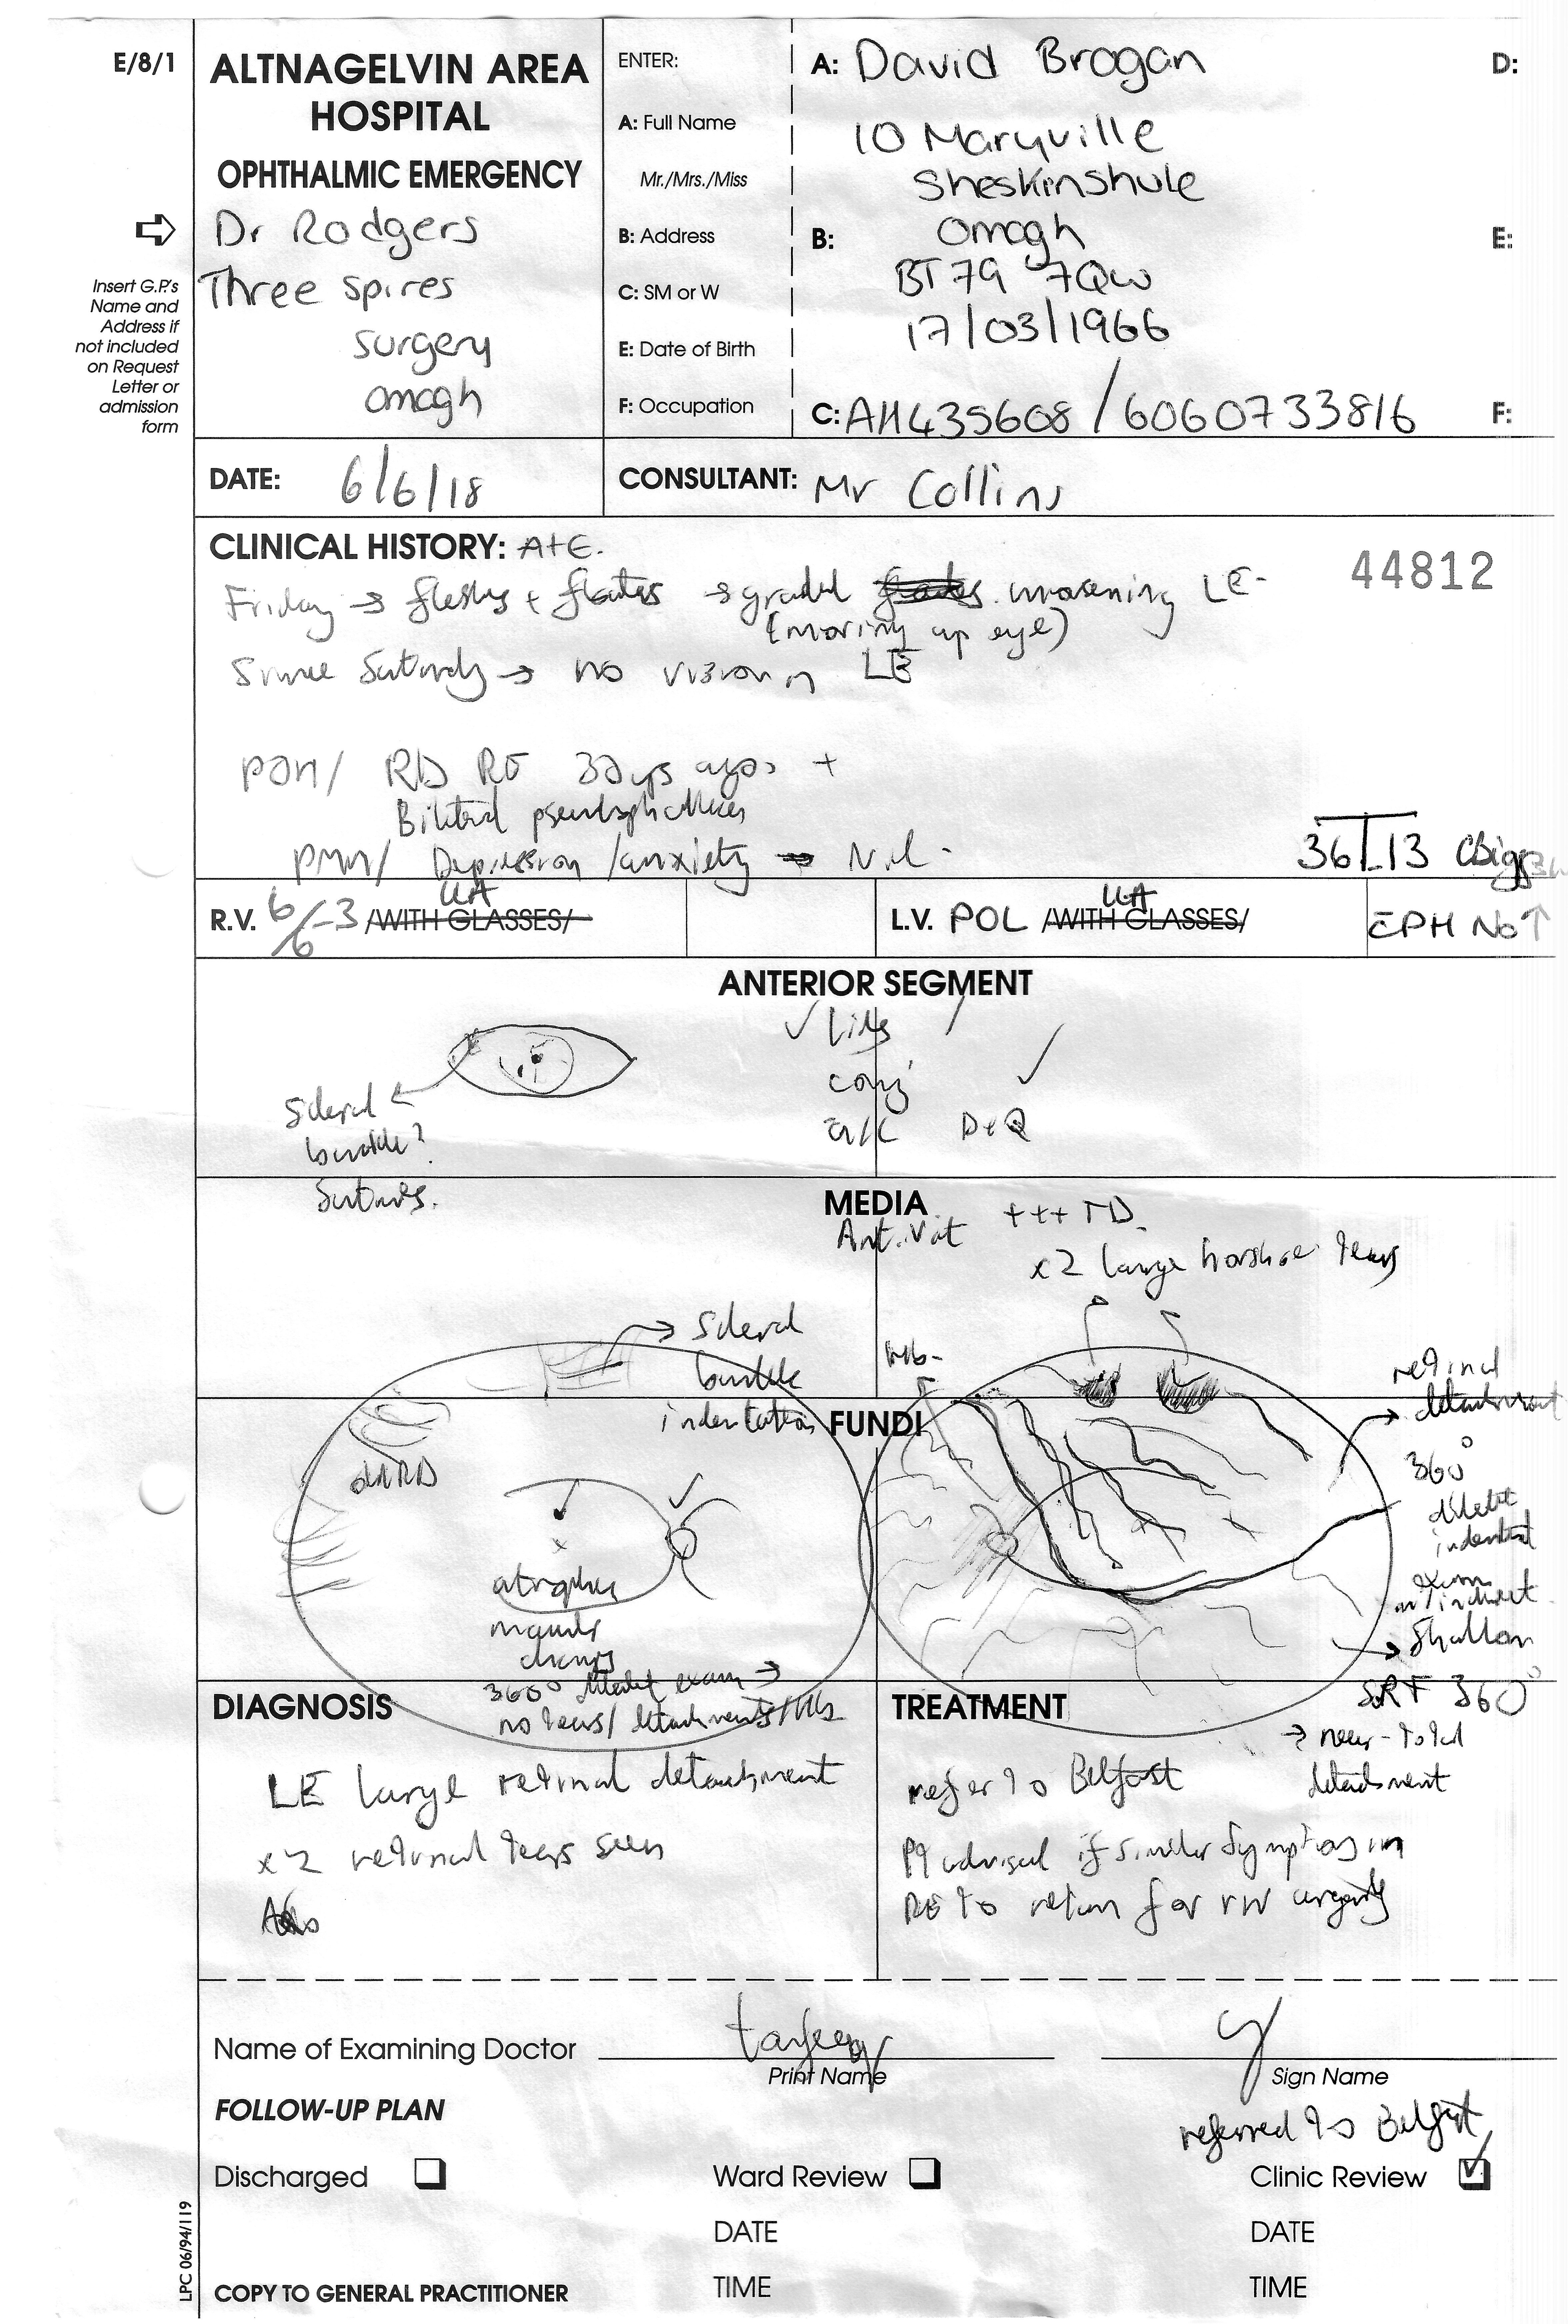 E/8/1
ALTNAGELVIN AREA
HOSPITAL
OPHTHALMIC EMERGENCY
Dr Rodgers
Three Spires
surgery
omagh
Insert G.P.'s
Name and
Address if
not included
on Request
Letter or
admission
form
ENTER:
A: Full Name
Mr./Mrs./Miss
B: Address
C: SM or W
E: Date of Birth
F: Occupation
A: David Brogan
10 Maryville
Sheskinshule
B: Omagh
BT79 7QW
17/03/1966
C: AH435608 / 6060733816
D:
E:
F:
DATE: 6/6/18
CONSULTANT: Mr Collins
CLINICAL HISTORY: A+E.
44812
Friday → flashes + floaters → gradual worsening LE
(moving up eye)
Since Saturday → no vision in LE
POH/ RD RE 30yrs ago +
Bilateral pseudophakia
PMH/ Depression/anxiety Nil.
36 13
R.V. 6/6-3 UA /WITH GLASSES/
L.V. POL UA /WITH GLASSES/
CPH No ↑
ANTERIOR SEGMENT
✓ lids
conj ✓
a/c D+Q
Scleral
buckle?
Sutures.
MEDIA
Ant. Vit +++ TD.
x2 large horshoe tears
Scleral
buckle
indentation
FUNDI
retinal
detachment
360°
dilated
indented
exam
w/indirect
Shallow
SRF 360°
→ near-total
detachment
atrophic
macular
changes
360° dilated exam →
no tears/detachments
DIAGNOSIS
LE large retinal detachment
x2 retinal tears seen
TREATMENT
refer to Belfast
Pt advised if similar symptoms in
RE to return for r/v urgently
Name of Examining Doctor
Print Name
Sign Name
FOLLOW-UP PLAN
referred to Belfast
Discharged
Ward Review
Clinic Review ✓
DATE
DATE
TIME
TIME
COPY TO GENERAL PRACTITIONER
LPC 06/94/119